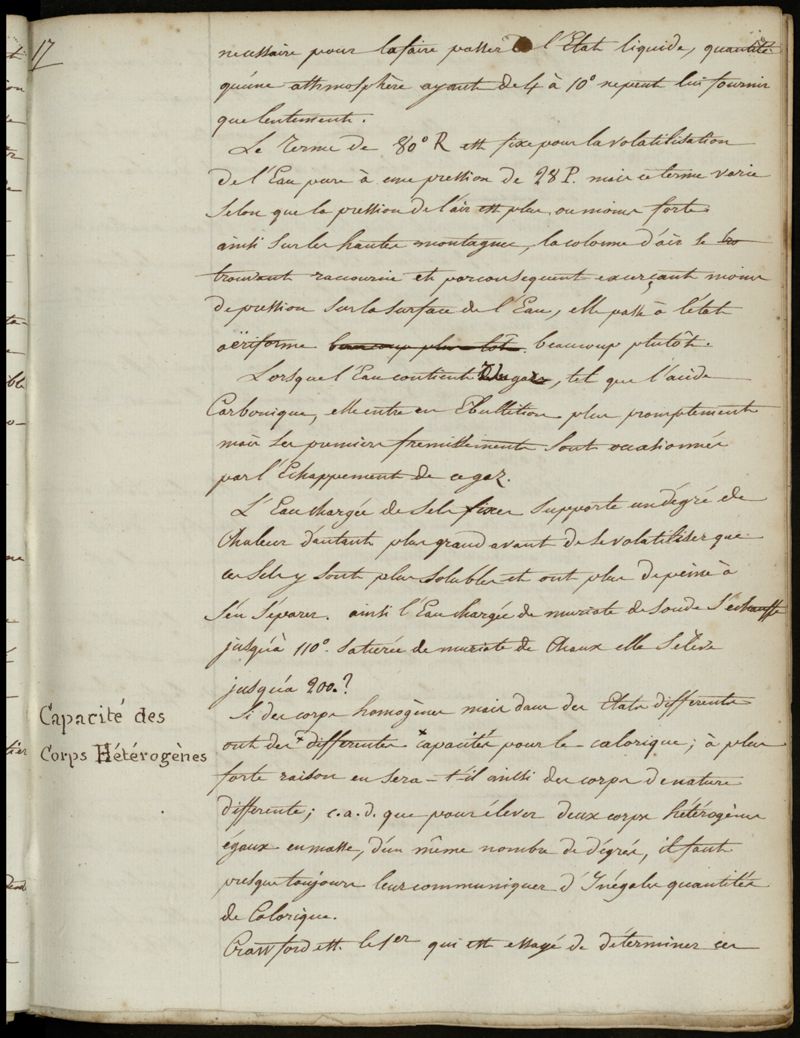 17
necessaire pour la faire passer à l'Etat liquide, quantité
qu'une athmosphère ayant de 4 à 10° ne peut lui fournir
que lentement.
Le Terme de 80° R est fixe pour la volatilisation
de l'Eau pure à une pression de 28 P. mais ce terme varie
selon que la pression de l'air est plus ou moins forte
ainsi sur les hautes montagnes, la colonne d'air se tro
trouvant raccourcie et par consequent exerçant moins
de pression sur la surface de l'Eau, elle passe à l'état
aëriforme beaucoup plus tôt. beaucoup plutôt.
Lorsque l'Eau contient du gaz, tel que l'acide
Carbonique, elle entre en Ebullition plus promptement
mais ses premiers fremissements sont occasionnés
par l'Echappement de ce gaz.
L'Eau chargée de sels fixes supporte un dégré de
Chaleur d'autant plus grand avant de se volatiliser que
ces sels y sont plus solubles et ont plus de peine à
s'en séparer. ainsi l'Eau chargée de muriate de soude s'échauffe
jusqu'à 110°. saturée de muriate de Chaux elle s'élève
jusqu'à 200.?
Capacité des
Corps Hétérogènes
Si des corps homogènes mais dans des Etats differents
ont des differentes capacités pour le calorique; à plus
forte raison en sera-t-il ainsi des corps de nature
differente; c.a.d. que pour élever deux corps hétérogènes
égaux en masse, d'un même nombre de dégrés, il faut
presque toujours leur communiquer d'Inégales quantités
de Calorique.
Crawford est le 1er qui ait essayé de déterminer ces